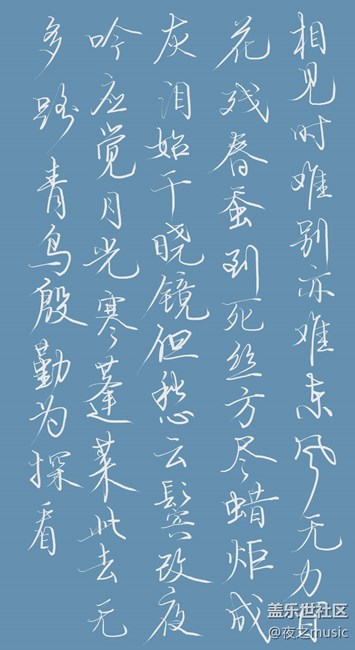 相见时难别亦难东风无力百
花残春蚕到死丝方尽蜡炬成
灰泪始干晓镜但愁云鬓改夜
吟应觉月光寒蓬莱此去无
多路青鸟殷勤为探看
盖乐世社区
@夜之music